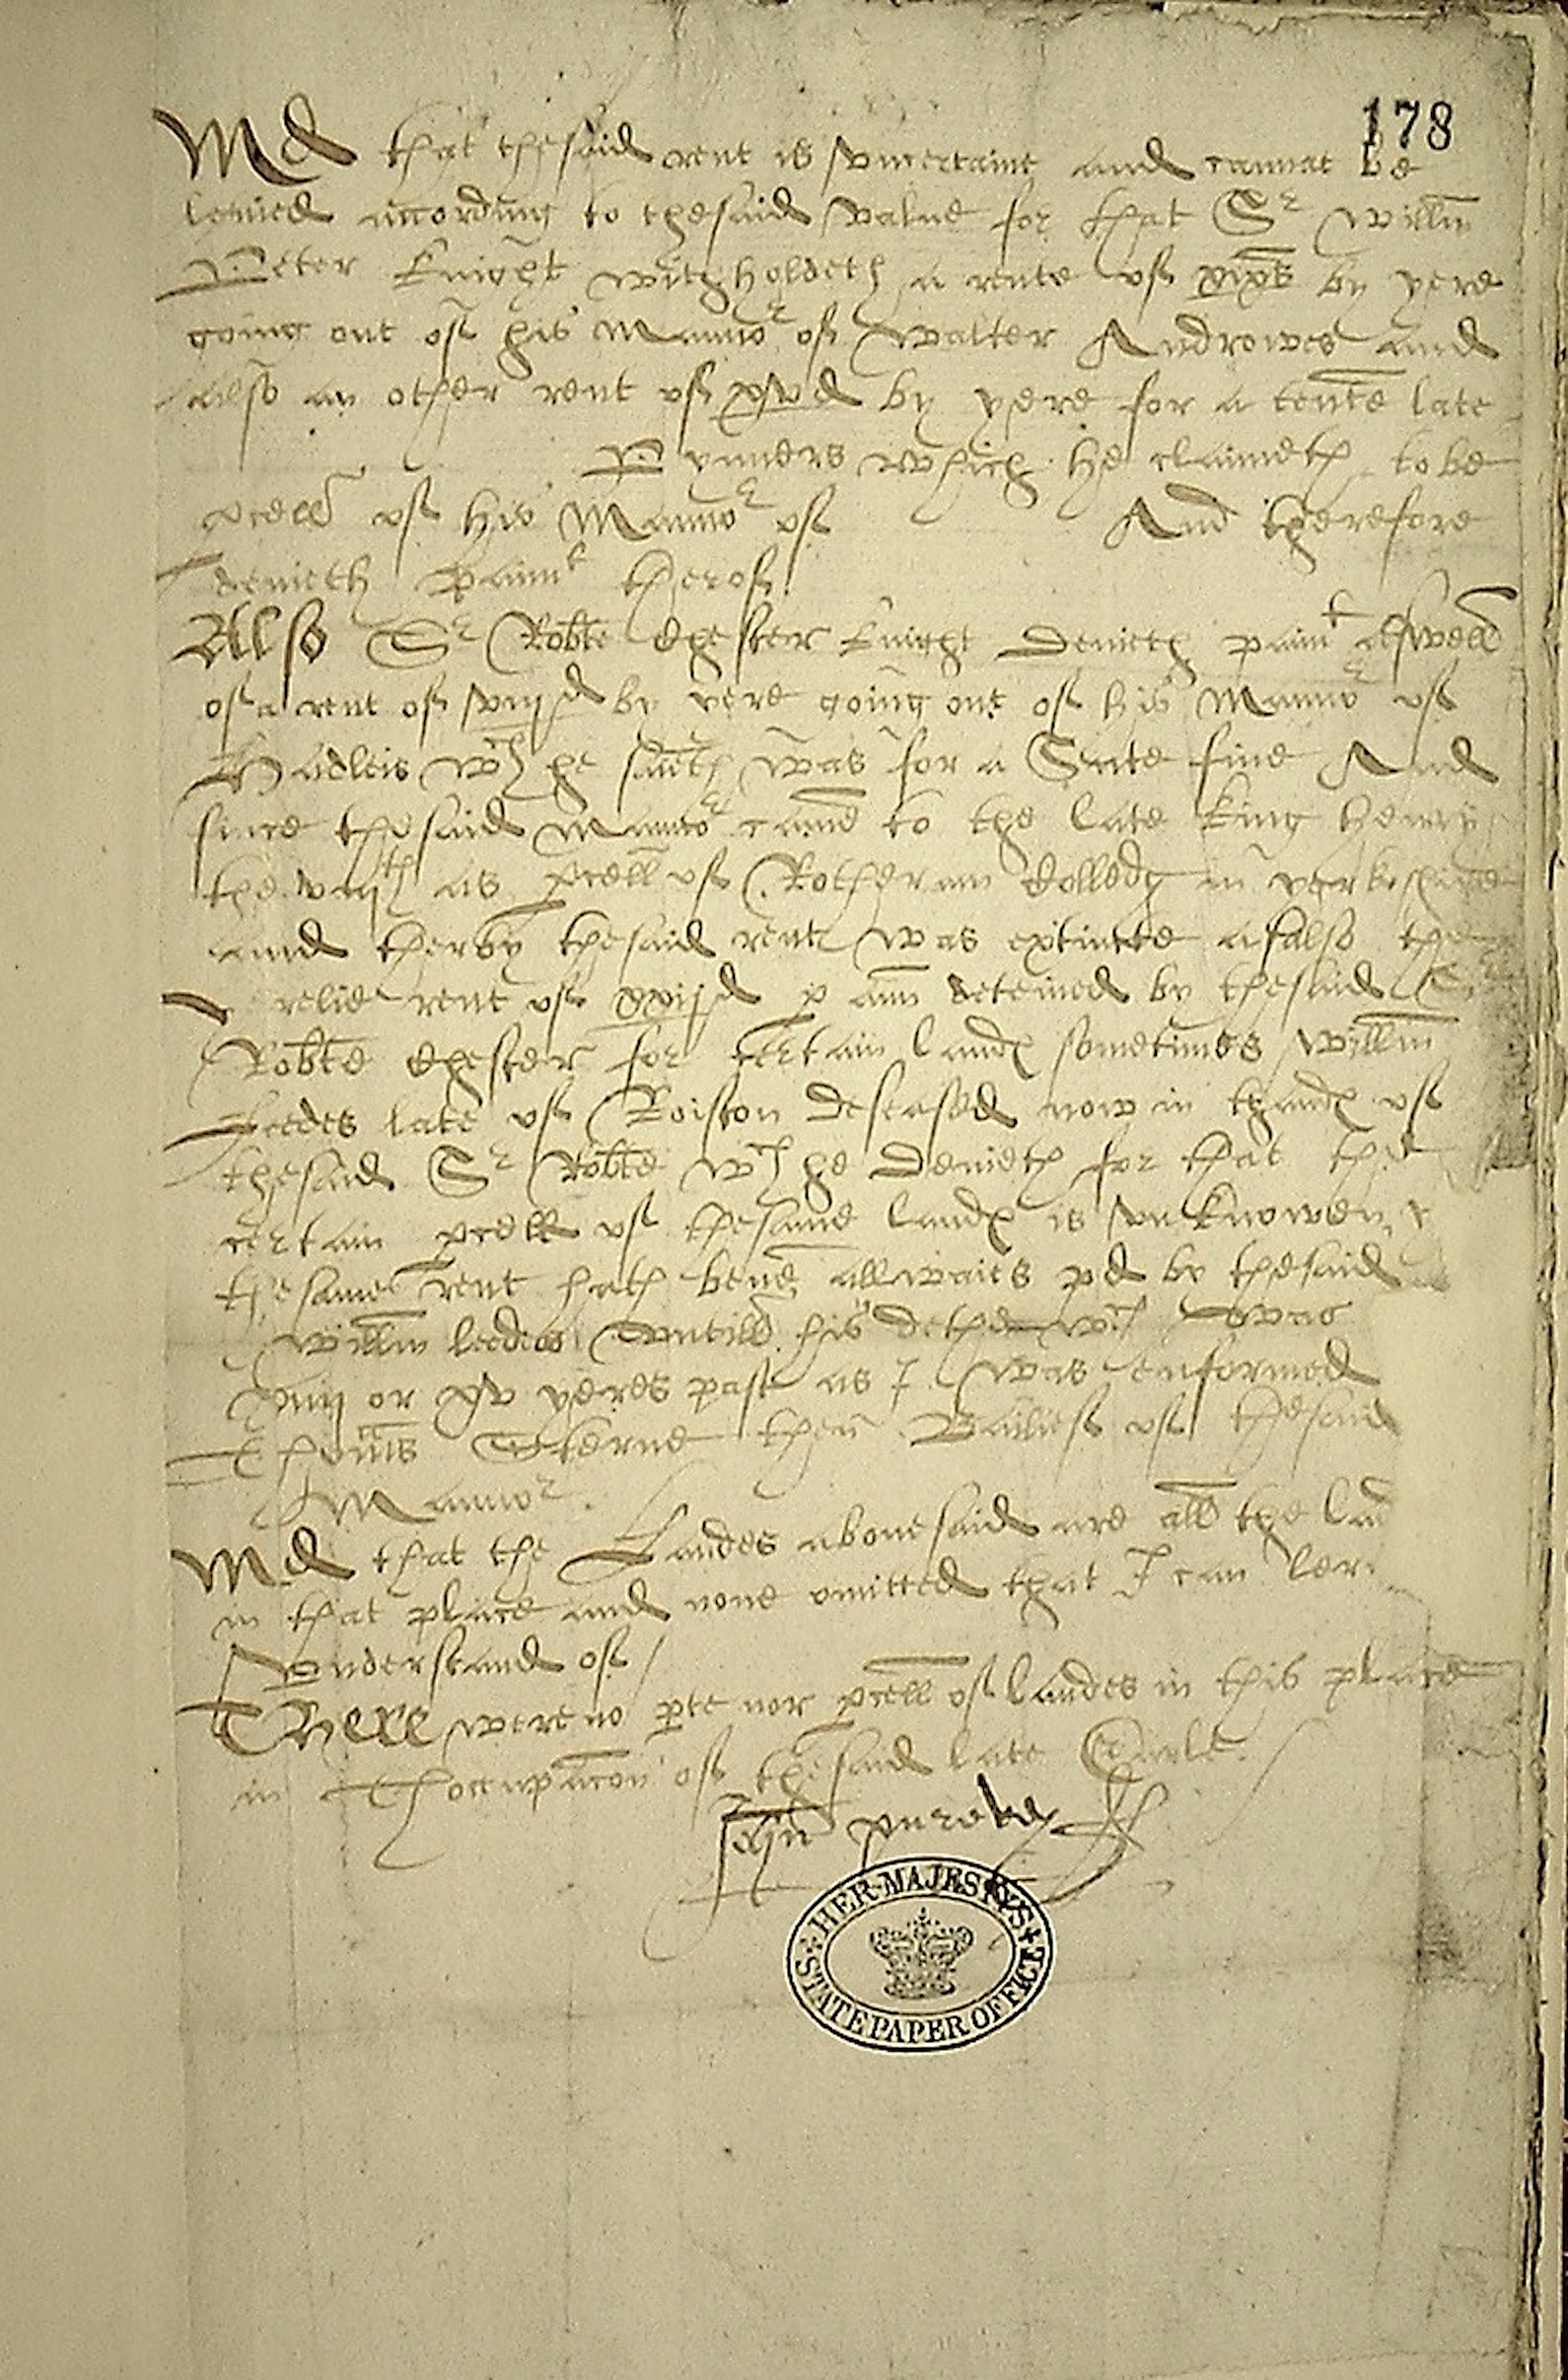 178
Md that thesaid rent is vncertaine and cannat be
levied according to thesaid value for that Sr Willm
Peter knight withholdeth a rente of by yere
going out of his Mannor of Walter Androwes and
also an other rent of xvd by yere for a tente late
which he claimeth to be
pcell of his Mannor of And therefore
denieth paimt therof
Also Sr Robte Chester knight denieth paimt aswell
of a rent of viijd by yere going out of his Mannor of
Hadleis wch he saieth was for a Sute fine And
since thesaid Mannor came to the late king henry
the viijth as pcell of Rotheram Colledg in yorkeshire
and therby thesaid rent was extincte as also the
relie rent of xvijd p ann deteined by thesaid Sr
Robte Chester for certain lands sometimes Willm
Leedes late of Roiston deseased now in thands of
thesaid Sr Robte wch he denieth for that the
certain pcell of thesame lands is vnknowen
thesame rent hath bene allwaies pd by thesaid
Willm leedes vntill his dethe wch was
xiiij or xv yeres past as I was enformed
Thoms Sterne then Bailief of thesaid
Mannor.
Md that the Landes abouesaid are all the
in that place and none omitted that I can
Vnderstand of
There were no pte nor pcell of landes in this place
in Thoccupacon of thesaid late Earle.
John purvey
HER MAJESTY'S STATE PAPER OFFICE